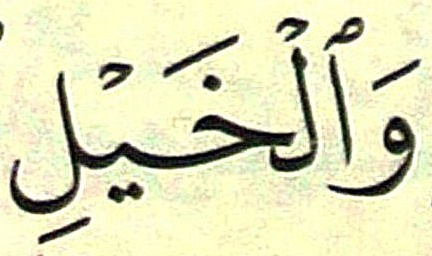 وَٱلْخَيْلِ